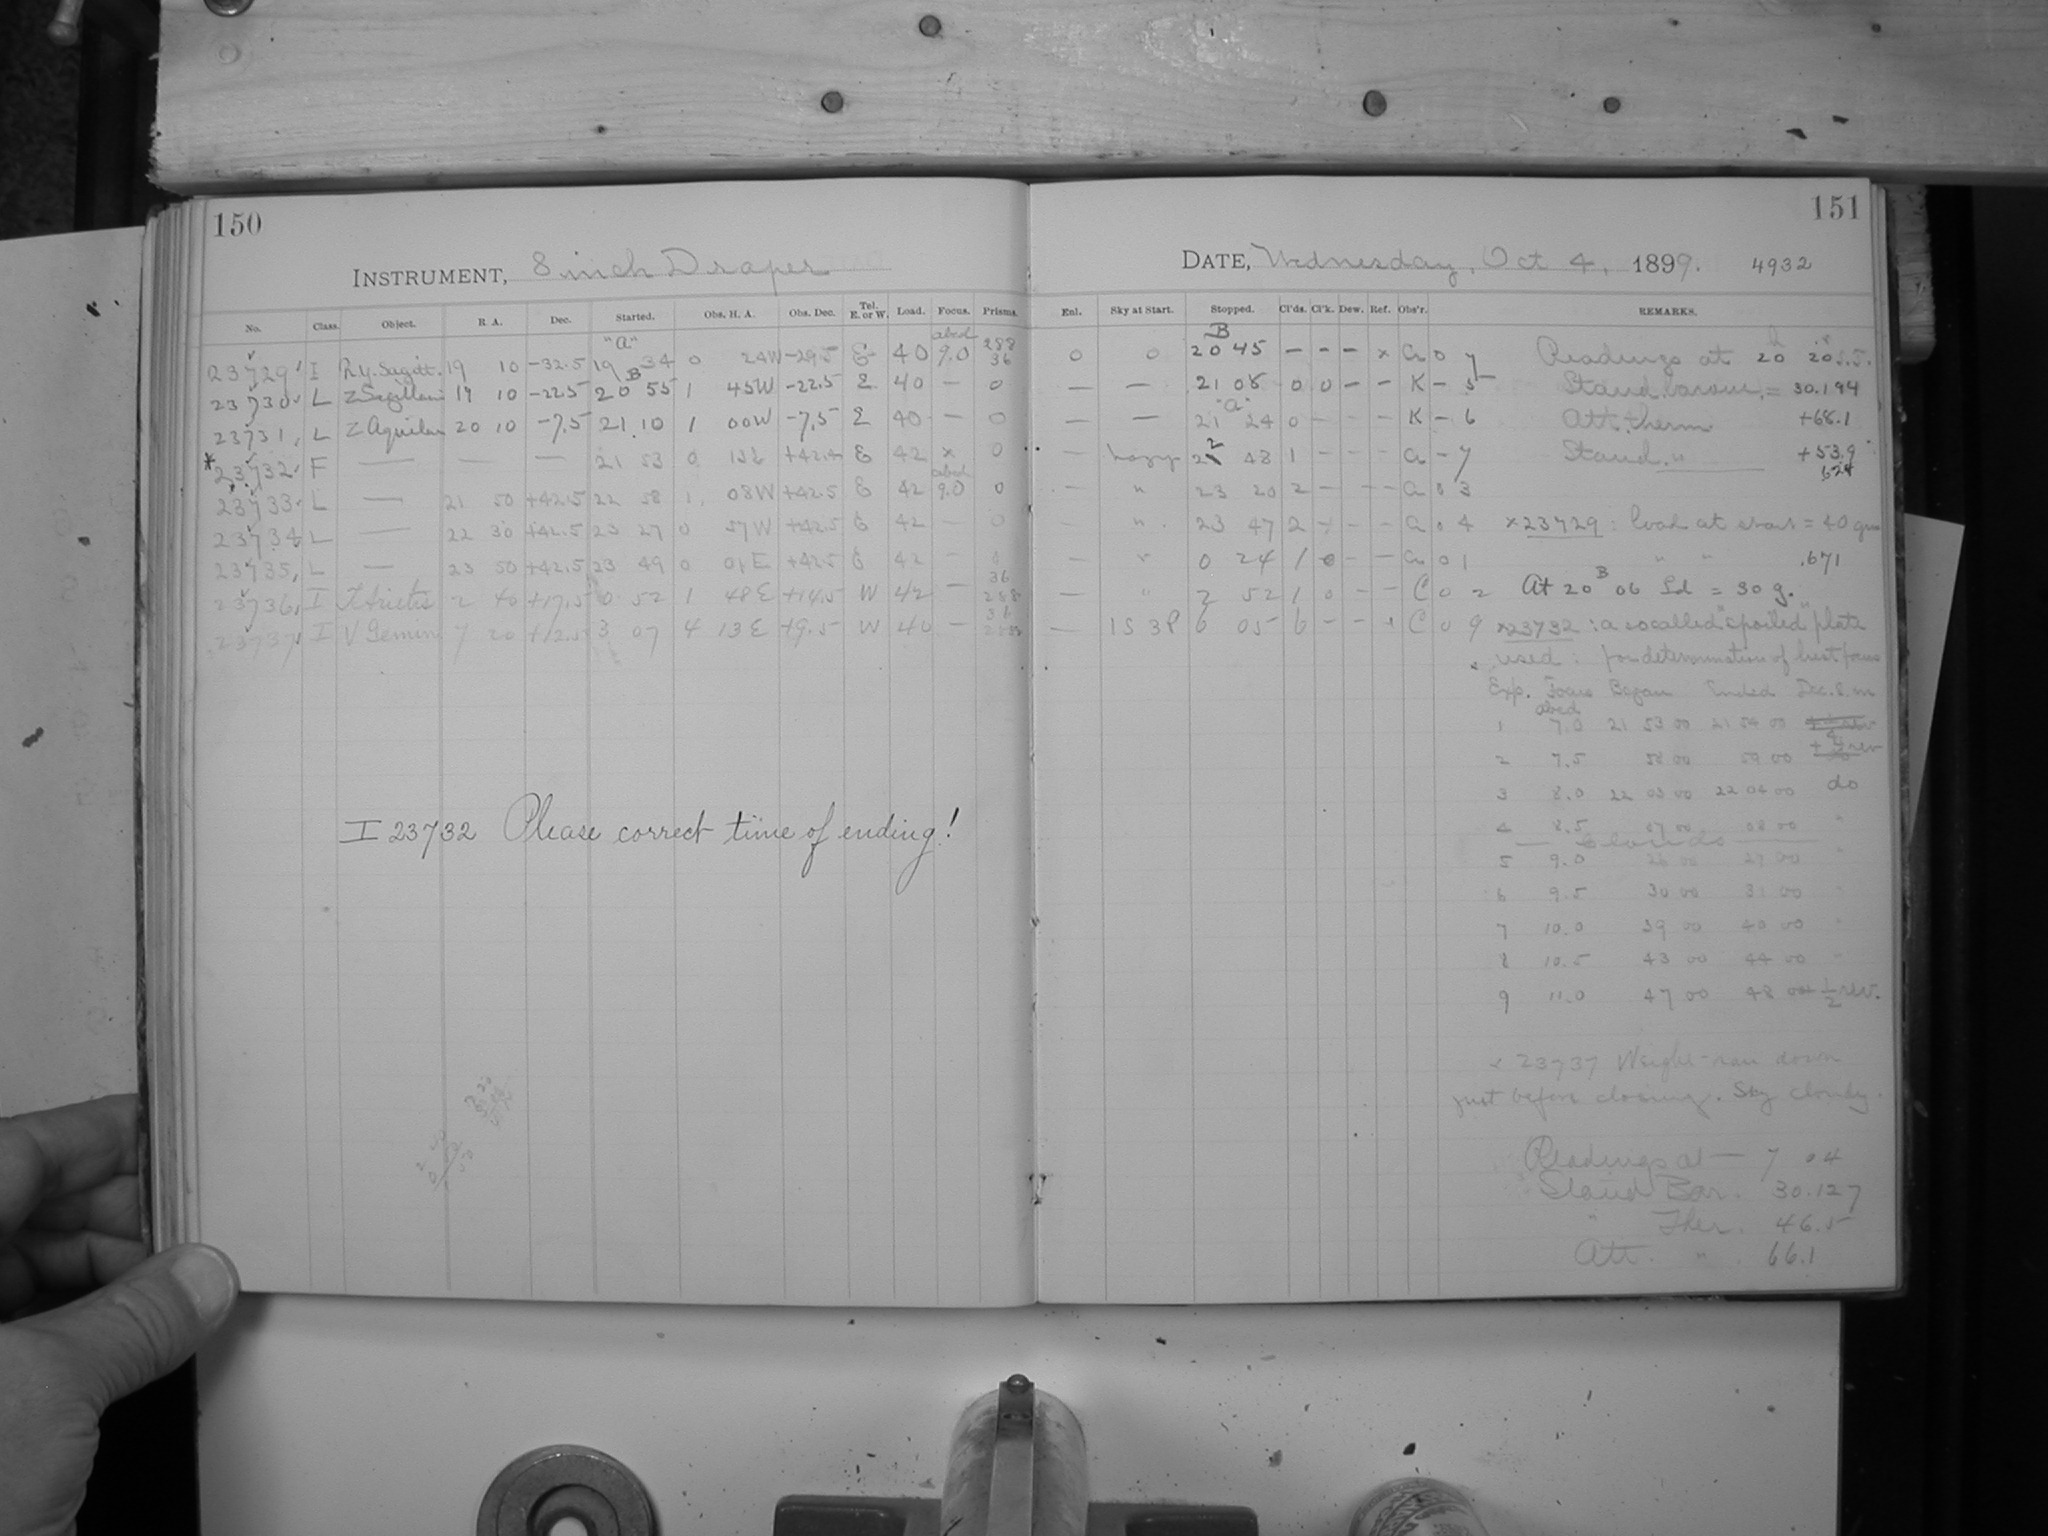 150
INSTRUMENT, 8 inch Draper
No. Class. Object. R A. Dec. Started. Obs. H. A. Obs. Dec. Tel. E. or W. Load. Focus. Prisms.
"A" abcd 288
23729 I R.Y. Sagitt. 19 10 -32.5 19 34 0 24W -29.5 E 40 9.0 36
B
23730 L Z Sagittari 19 10 -22.5 20 55 1 45W -22.5 E 40 — 0
23731 L Z Aquilae 20 10 -7.5 21 10 1 00W -7.5 E 40 — 0
*23732 F — — — 21 53 0 13E +42.4 E 42 x 0
abcd
23733 L — 21 50 +42.5 22 58 1 08W +42.5 E 42 9.0 0
23734 L — 22 30 +42.5 23 27 0 57W +42.5 E 42 — 0
23735 L — 23 50 +42.5 23 49 0 01E +42.5 E 42 —
36
23736 I T Arietis 2 40 +17.5 0 52 1 48E +14.5 W 42 — 288
23737 I V Gemin 7 20 +12.5 3 07 4 13E +9.5 W 40 —
I 23732 Please correct time of ending!
151
DATE, Wednesday, Oct 4, 1899. 4932
Enl. Sky at Start. Stopped. Cl'ds. Cl'k. Dew. Ref. Obs'r. REMARKS.
B
0 0 20 45 — — — x a 0 7 Readings at 20 20
— — 21 08 0 0 — — K — 5 Stand. barom. = 30.194
"a"
— — 21 24 0 — — K — 6 Att. therm +68.1
— hazy 22 48 1 — — — a — 7 Stand. " +53.9
— " 23 20 2 — — — a 0 3 .624
— " 23 47 2 — — a 0 4 x23729: load at start = 40 gm
— " 0 24 1 0 — — a 0 1 " " .671
— " 2 52 1 0 — — C 0 2 At 20 B 06 Ld = 30 g.
— 1S 3P 6 05 6 — — C 0 9 x23732: a so called "spoiled" plate
used: for determination of best focus
Exp. Focus Began Ended Dec. S. m
abcd
1 7.0 21 53 00 21 54 00
2 7.5 58 00 59 00
3 8.0 22 03 00 22 04 00 do
4 8.5 07 00 08 00 "
— Clouds —
5 9.0 26 00 27 00 "
6 9.5 30 00 31 00 "
7 10.0 39 00 40 00 "
8 10.5 43 00 44 00 "
9 11.0 47 00 48 00 + 1/2 rev.
x 23737 Weight ran down
just before closing. Sky cloudy.
Readings at — 7 04
Stand Bar. 30.127
" Ther. 46.5
Att. " 66.1